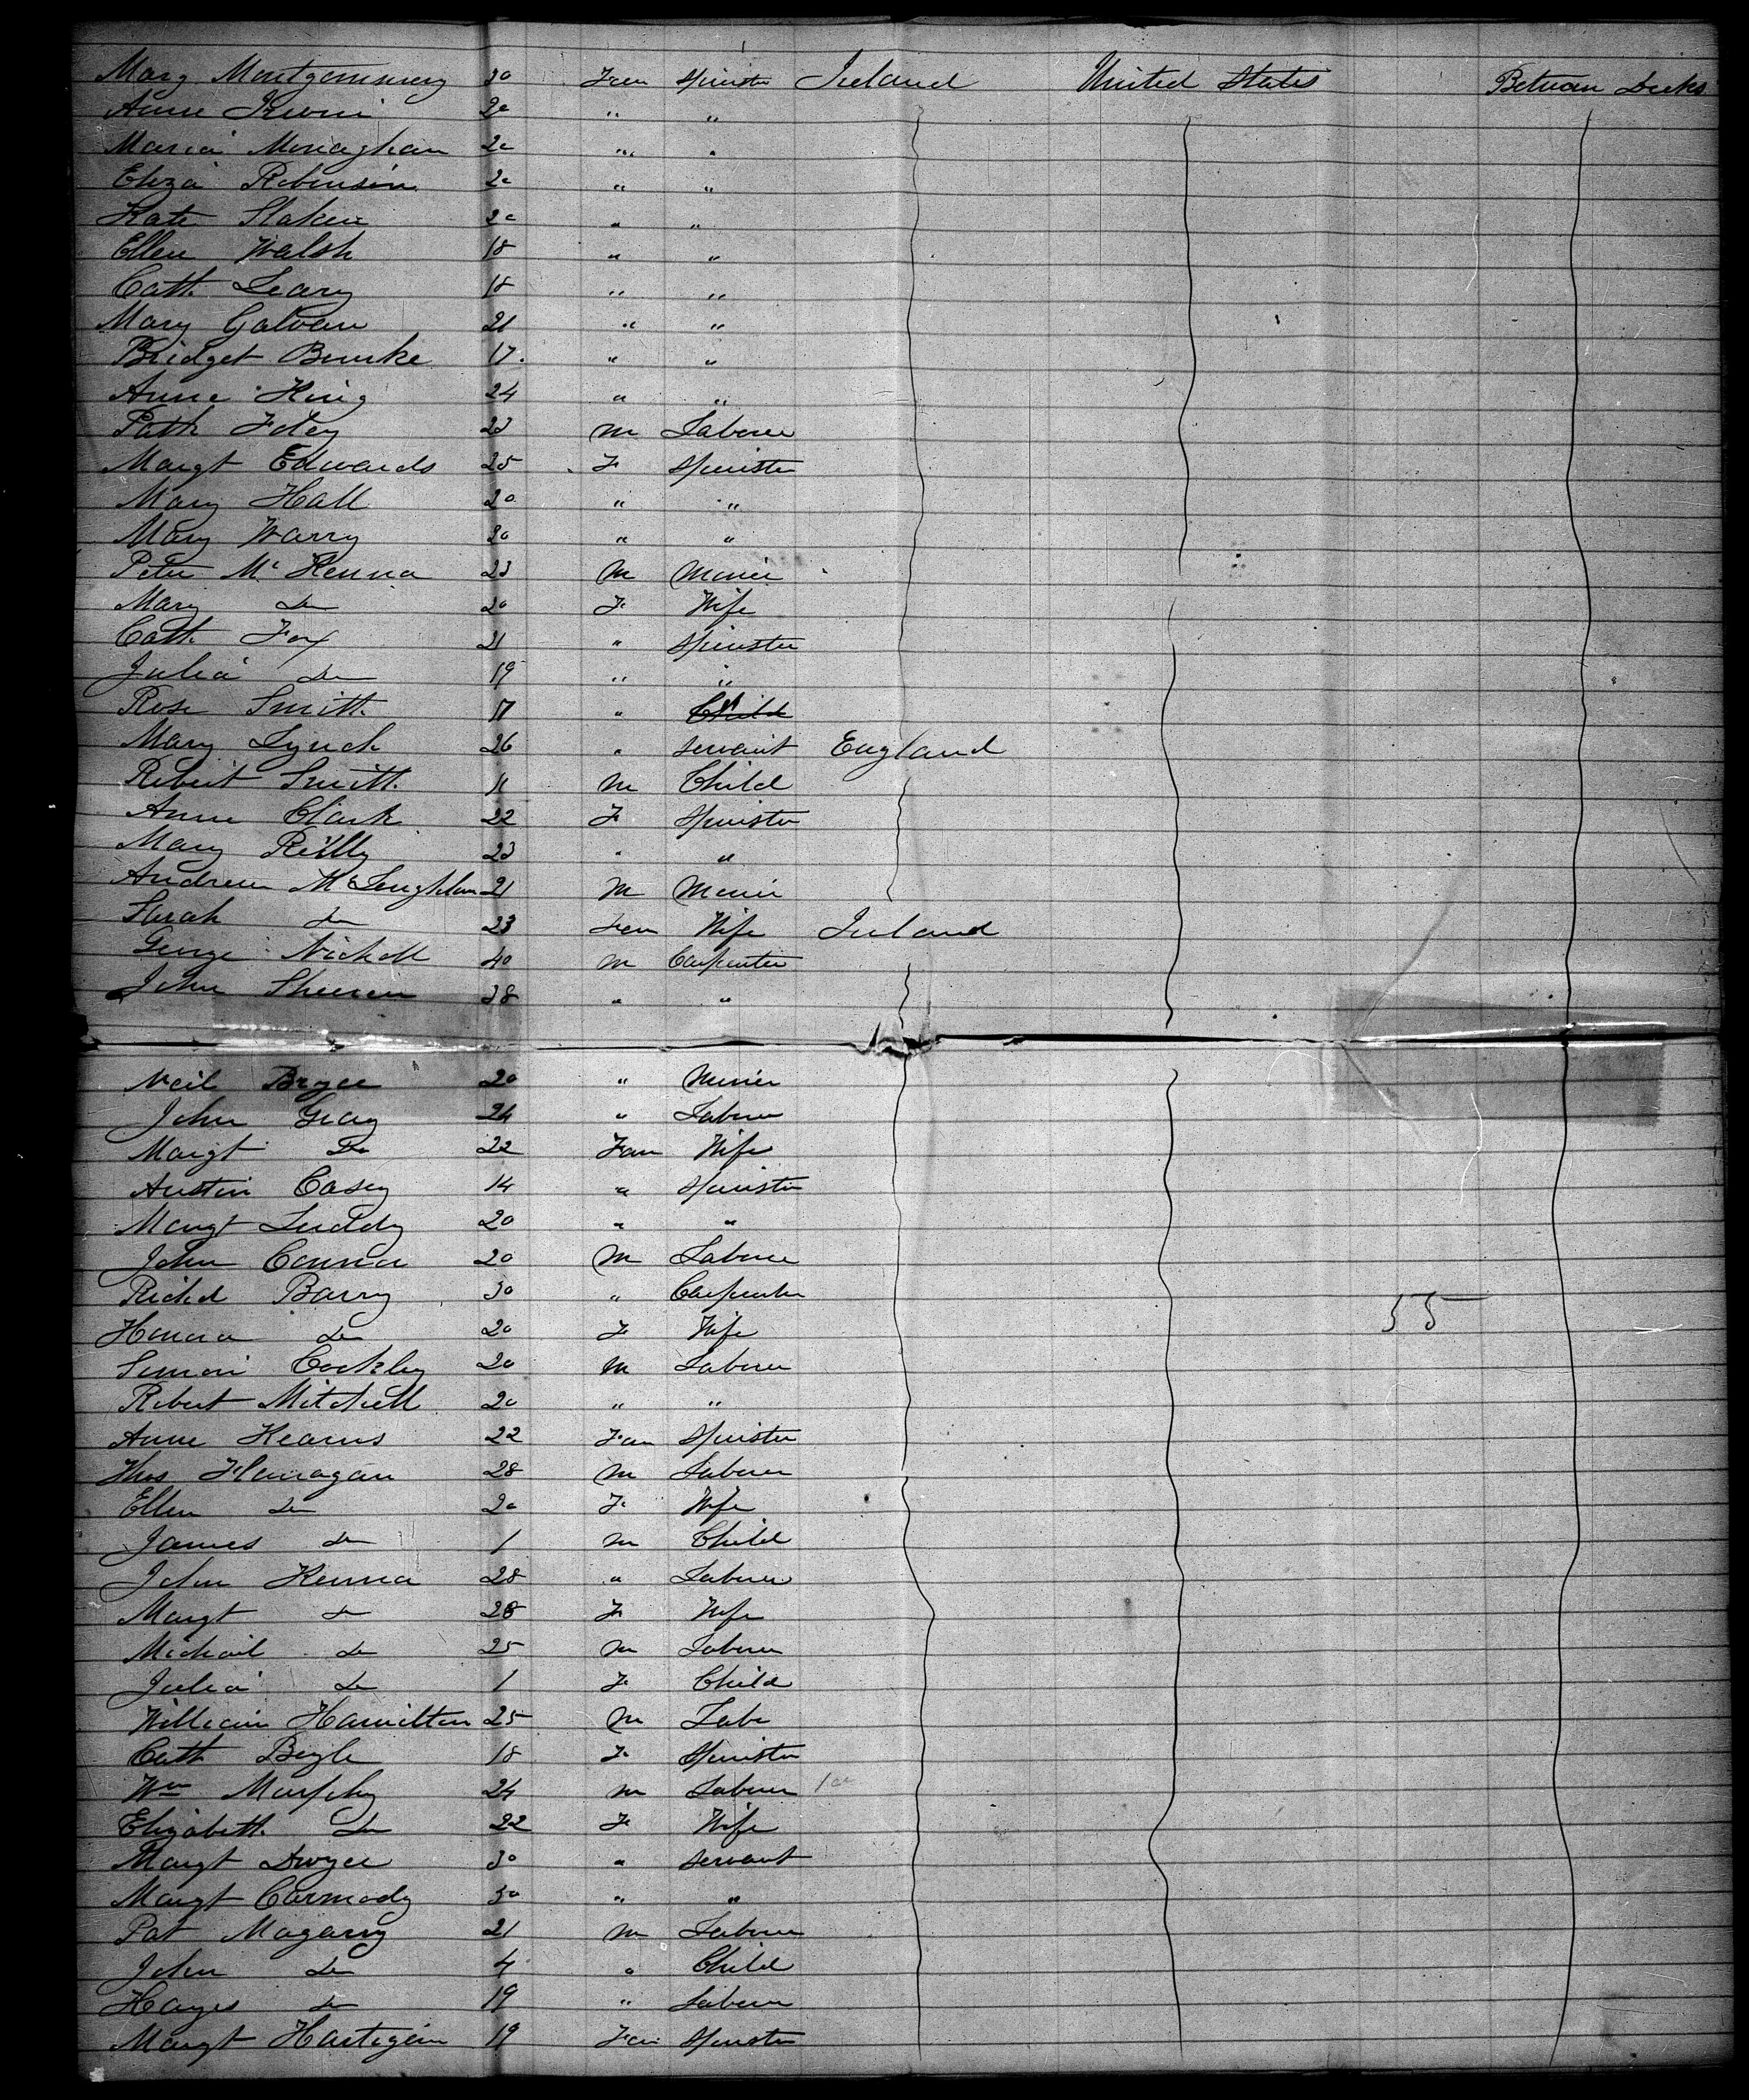 Mary Montgommery 20 Fem Spinster Ireland United States Between Decks
Anne Irvin 20 " "
Maria Monaghan 20 " "
Eliza Robinson 20 " "
Kate 20 " "
Ellen Walsh 18 " "
Cath. Leary 18 " "
Mary Galvan 21 " "
Bridget Bourke 17. " "
Anne King 24 " "
Patk Foley 23 M Laborer
Margt Edwards 25 F Spinster
Mary Hall 20 " "
Mary Warry 20 " "
Peter Mc Kenna 23 M Miner
Mary Do 20 F Wife
Cath. Fox 21 " Spinster
Julia Do 19 " "
Rose Smith 17 "
Mary Lynch 26 " Servant England
Robert Smith 11 M Child
Anne Clark 22 F Spinster
Mary Reilly 23 " "
Andrew McLoughlin 21 M Miner
Sarah Do 23 Fem Wife Ireland
George Nicholl 40 M Carpenter
John 38 " "
Neil Bryce 20 " Miner
John Gray 24 " Laborer
Margt Do 22 Fem Wife
Austin Casey 14 " Spinster
Margt Luddy 20 " "
John Connor 20 M Laborer
Richd Barry 30 " Carpenter
Honora Do 20 F Wife
55
Simon Cockley 20 M Laborer
Robert Mitchell 20 " "
Anne Kearns 22 Fem Spinster
Thos Flanagan 28 M Laborer
Ellen Do 20 F Wife
James Do 1 M Child
John Kenna 28 " Laborer
Margt Do 28 F Wife
Michail Do 25 M Laborer
Julia Do 1 F Child
William Hamilton 25 M Labr
Cath Boyle 18 F Spinster
Wm Murphy 24 M Laborer
Elizabeth Do 22 F Wife
Margt Dwyer 30 " Servant
Margt Carmody 30 " "
Pat Magarry 21 M Laborer
John Do 4 " Child
Hayes Do 19 " Laborer
Margt Hartigan 19 Fem Spinster